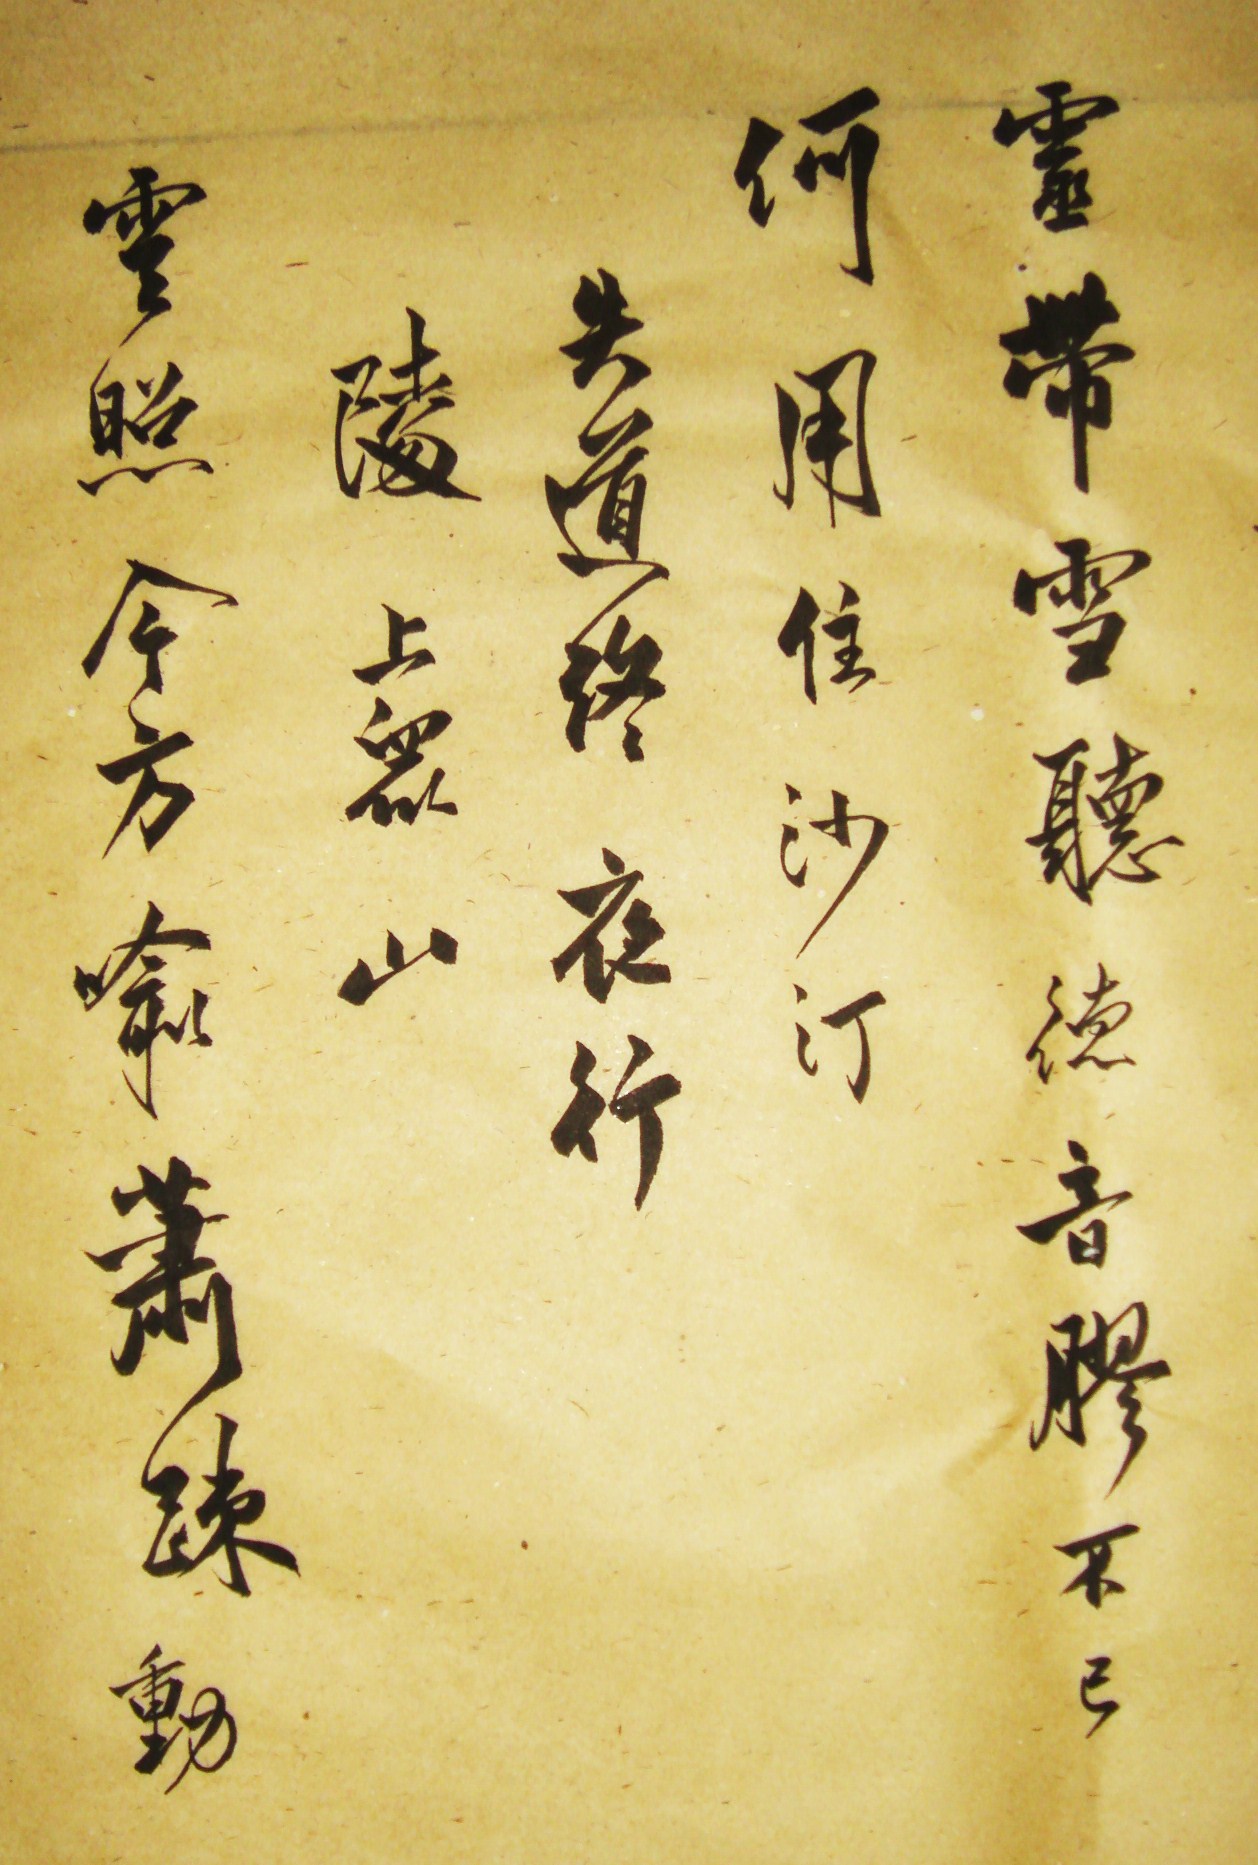 靈帶雪聽德音膠不已
何用住沙汀
失道終夜行
陵上眾山
雲照今方喻蕭疎動